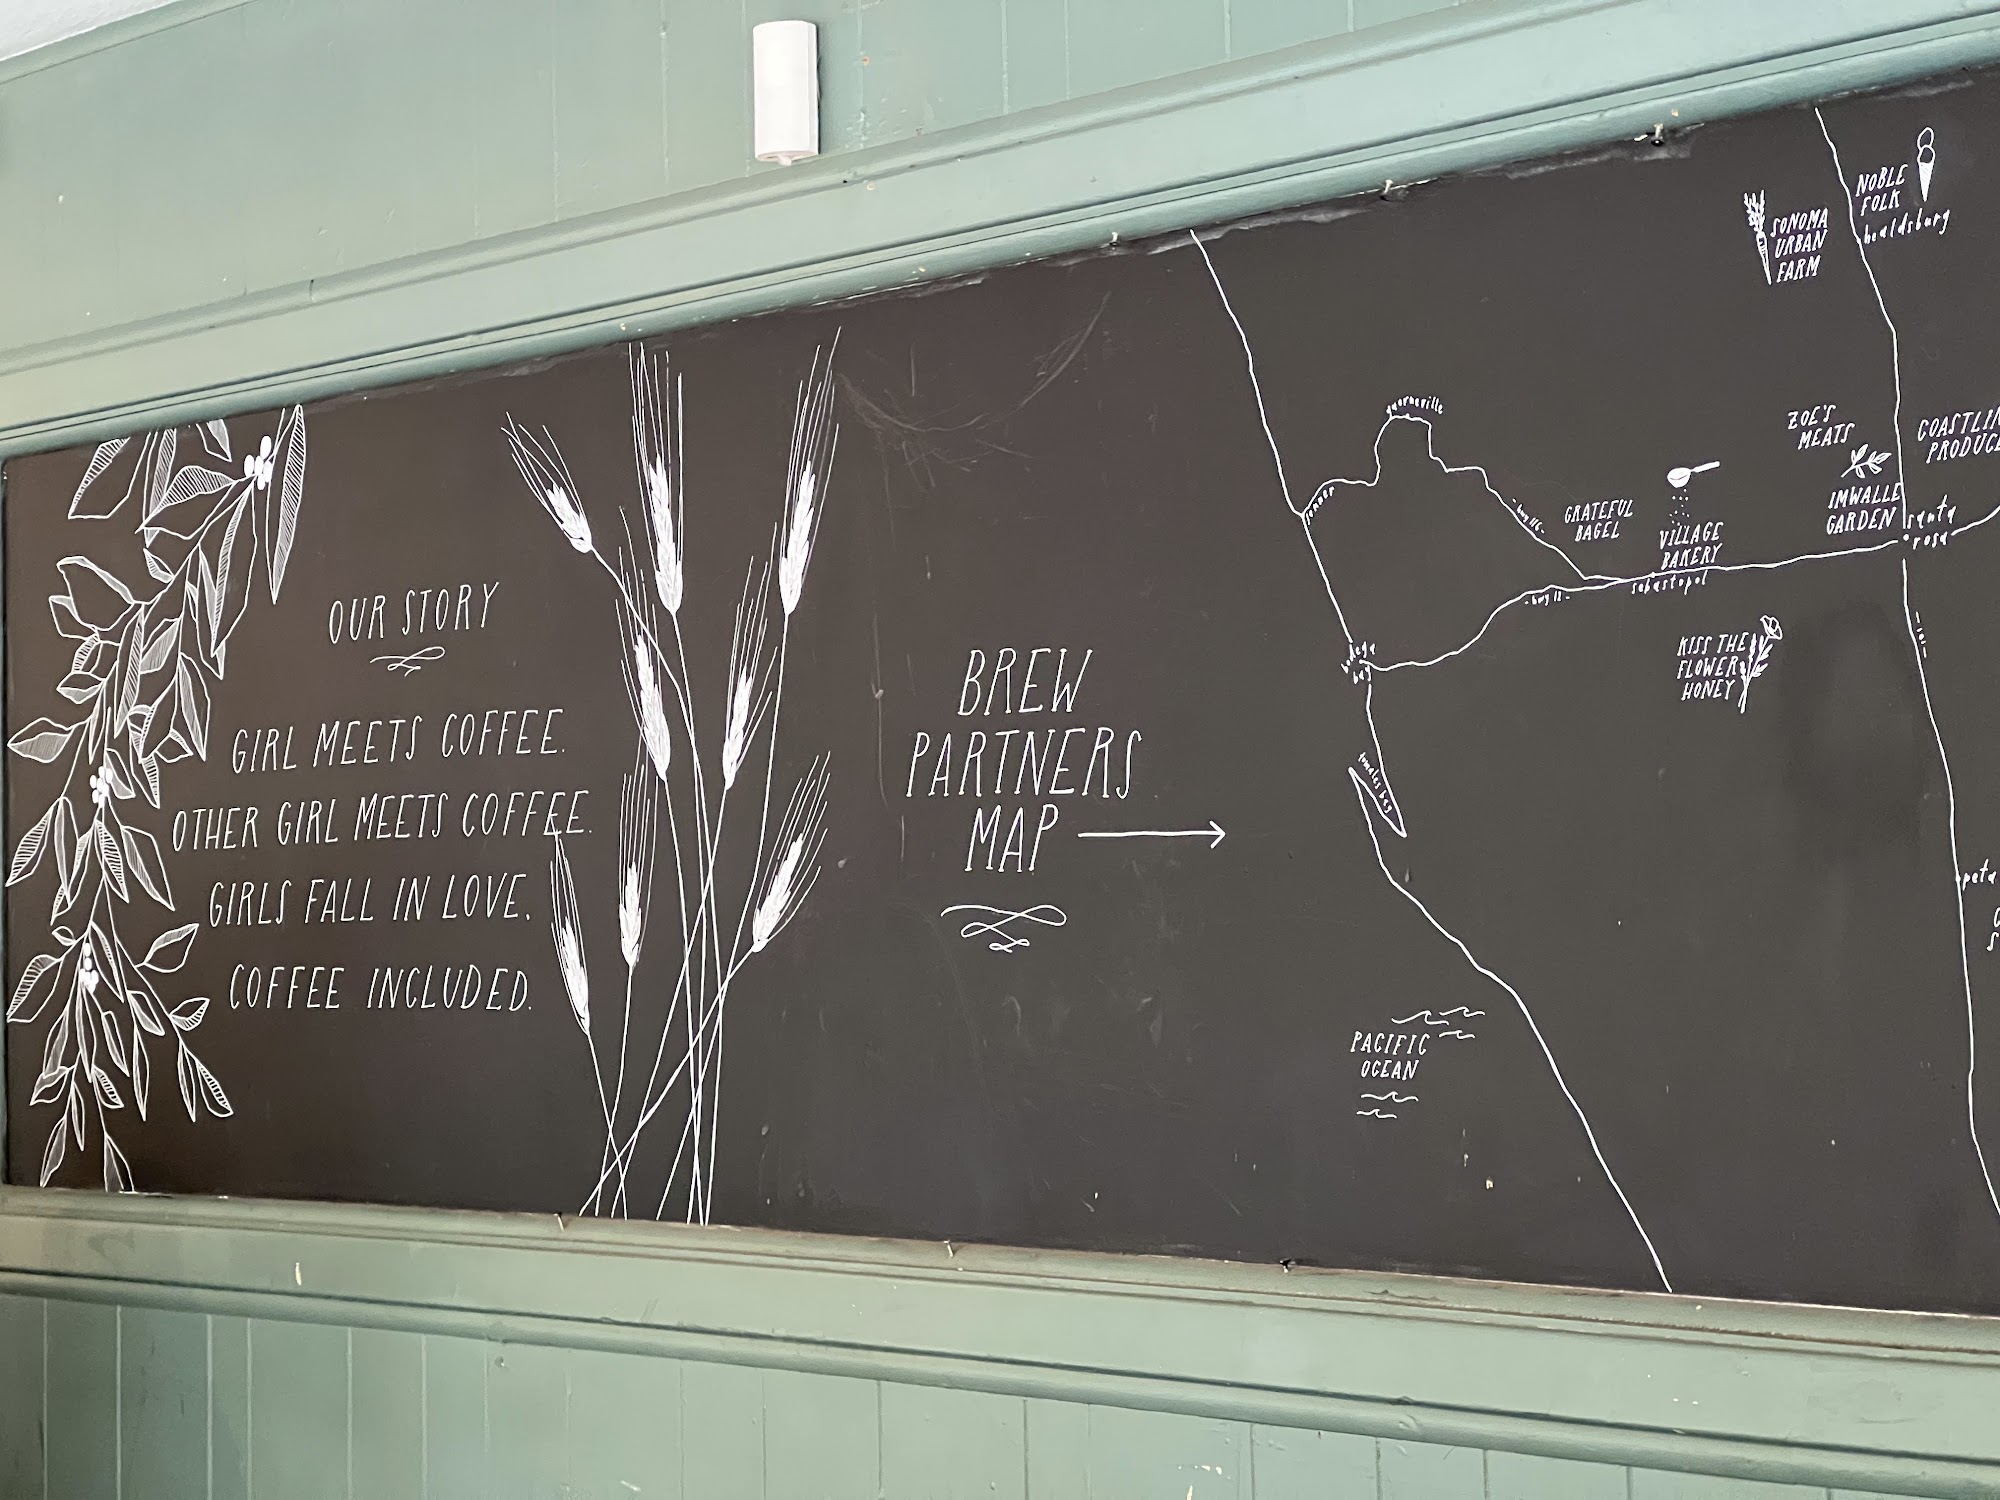 OUR STORY
GIRL MEETS COFFEE.
OTHER GIRL MEETS COFFEE.
GIRLS FALL IN LOVE.
COFFEE INCLUDED.
BREW
PARTNERS
MAP
guerneville
jenner
- hwy 116 -
bodega
bay
- hwy 12 -
sebastopol
tomales bay
PACIFIC
OCEAN
SONOMA
URBAN
FARM
NOBLE
FOLK
healdsburg
ZOE'S
MEATS
IMWALLE
GARDEN
santa
rosa
GRATEFUL
BAGEL
VILLAGE
BAKERY
KISS THE
FLOWER
HONEY
- 101 -